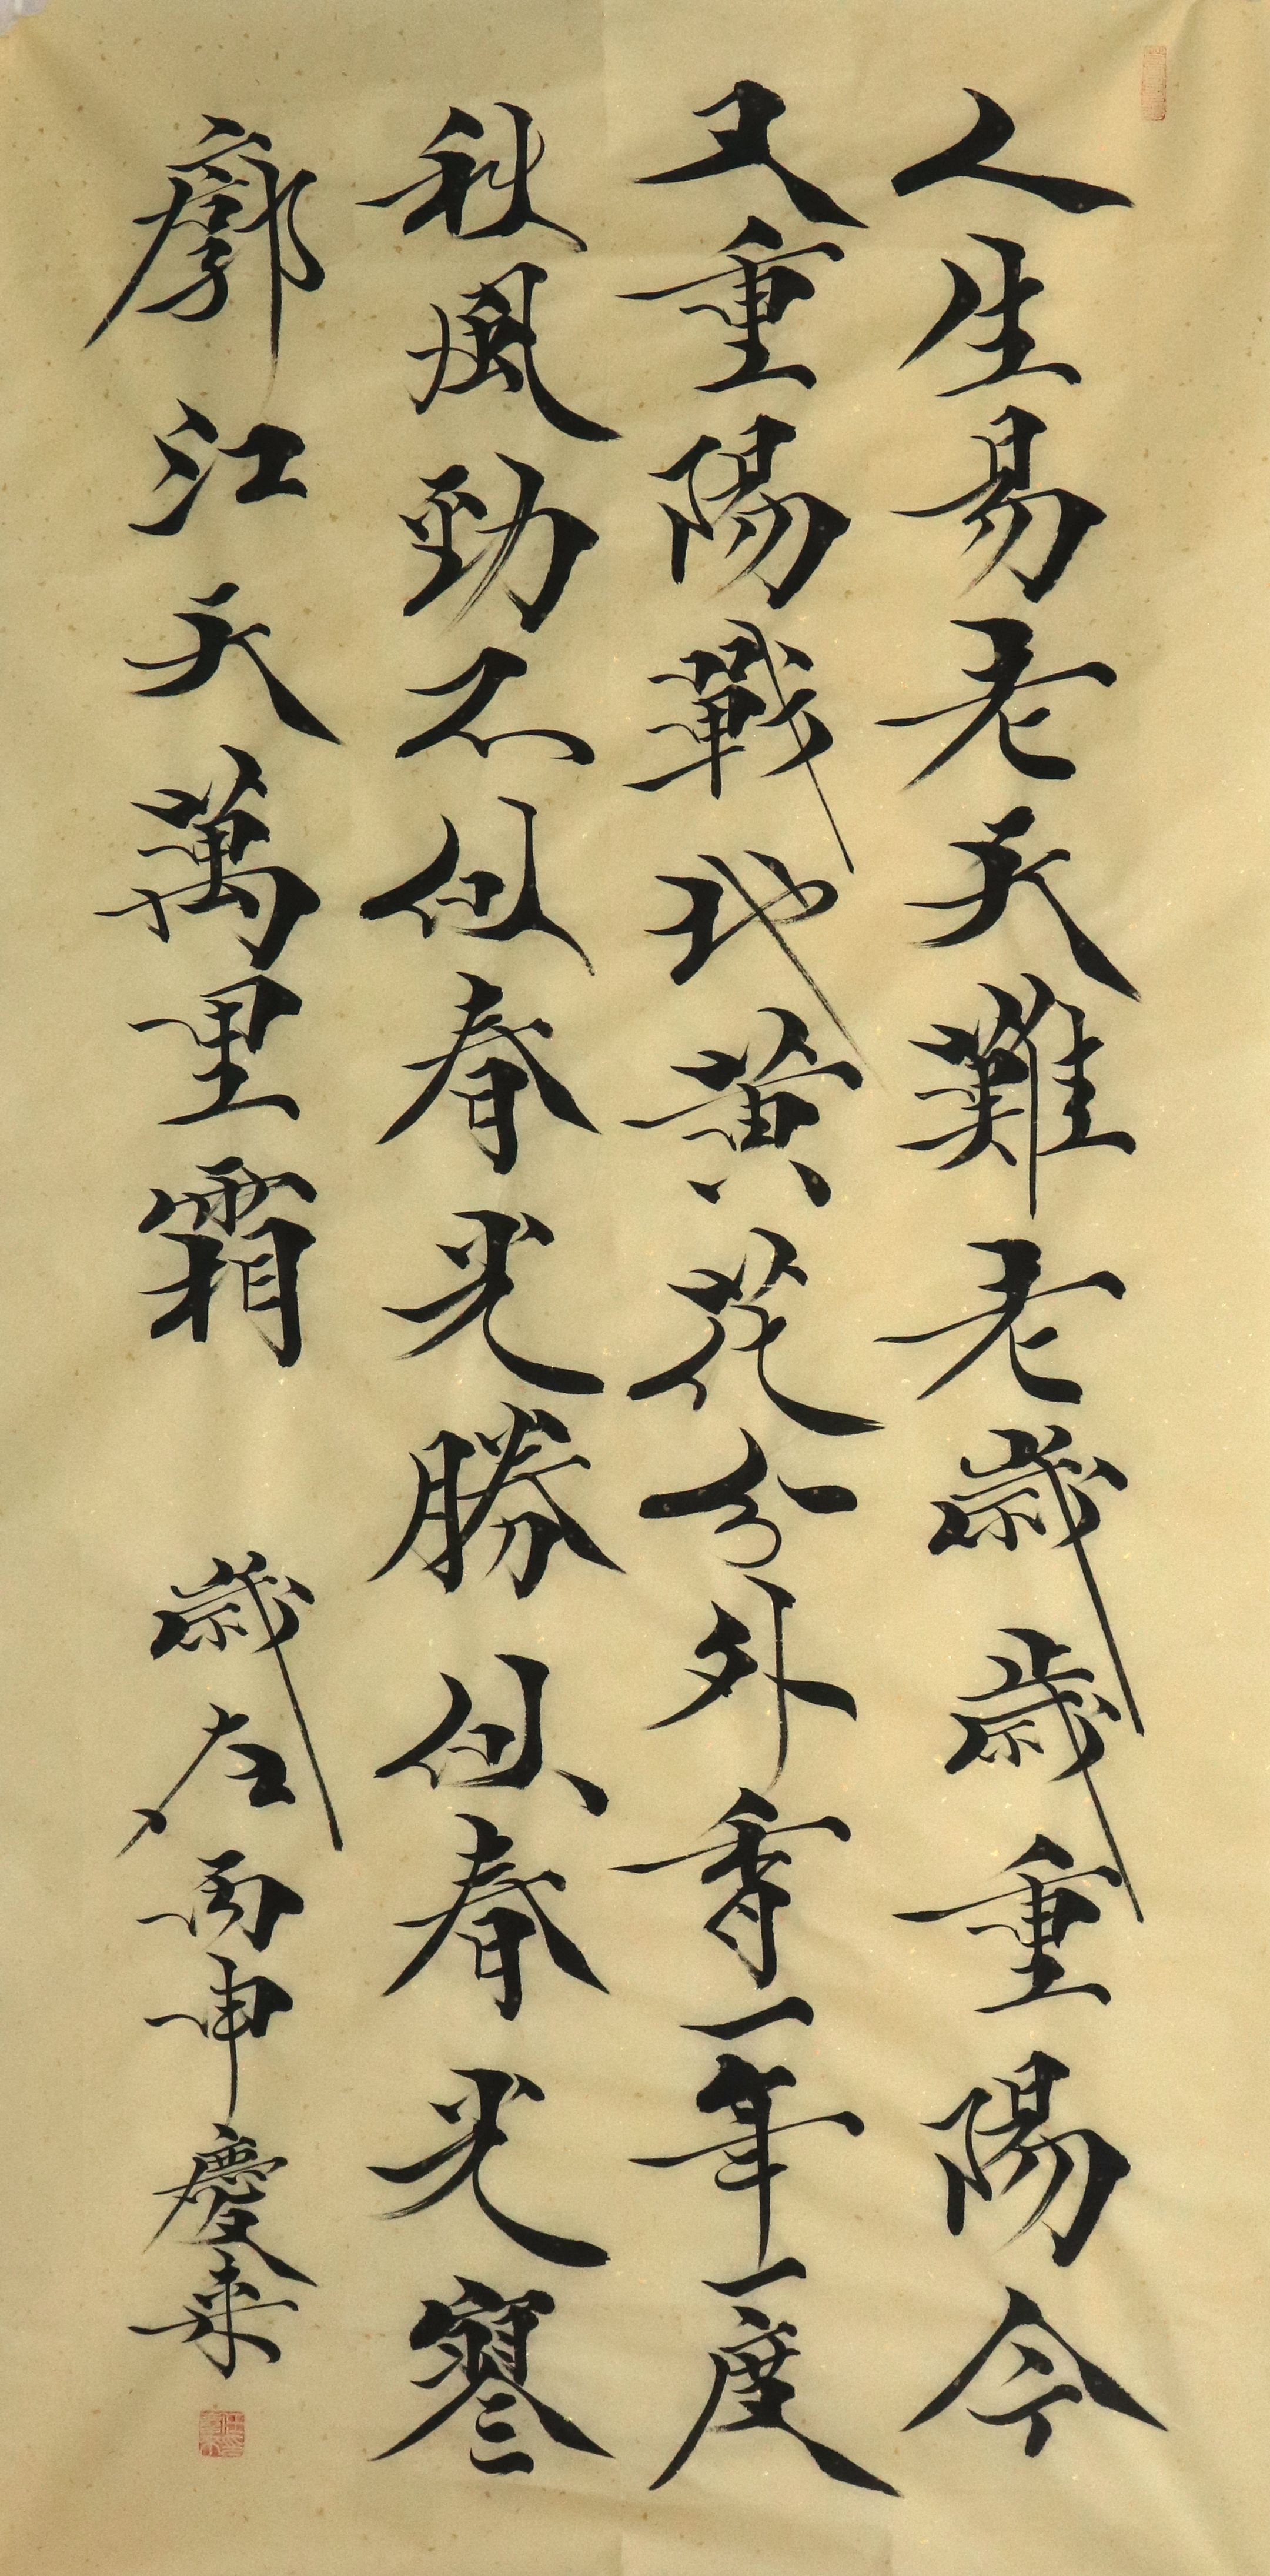 人生易老天難老歲歲重陽今
又重陽戰地黃花分外香一年一度
秋風勁不似春光勝似春光寥
廓江天萬里霜 歲在丙申慶来